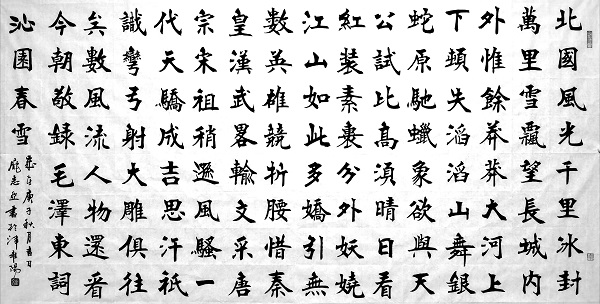 北國風光千里冰封
萬里雪飄望長城內
外惟餘莽莽大河上
下頓失滔滔山舞銀
蛇原馳蠟象欲與天
公試比高須晴日看
紅裝素裹分外妖嬈
江山如此多嬌引無
數英雄競折腰惜秦
皇漢武畧輸文采唐
宗宋祖稍遜風騷一
代天驕成吉思汗祇
識彎弓射大雕俱往
矣數風流人物還看
今朝敬録毛澤東詞
沁園春雪
歲在庚子秋月吉日
龐志書於陽